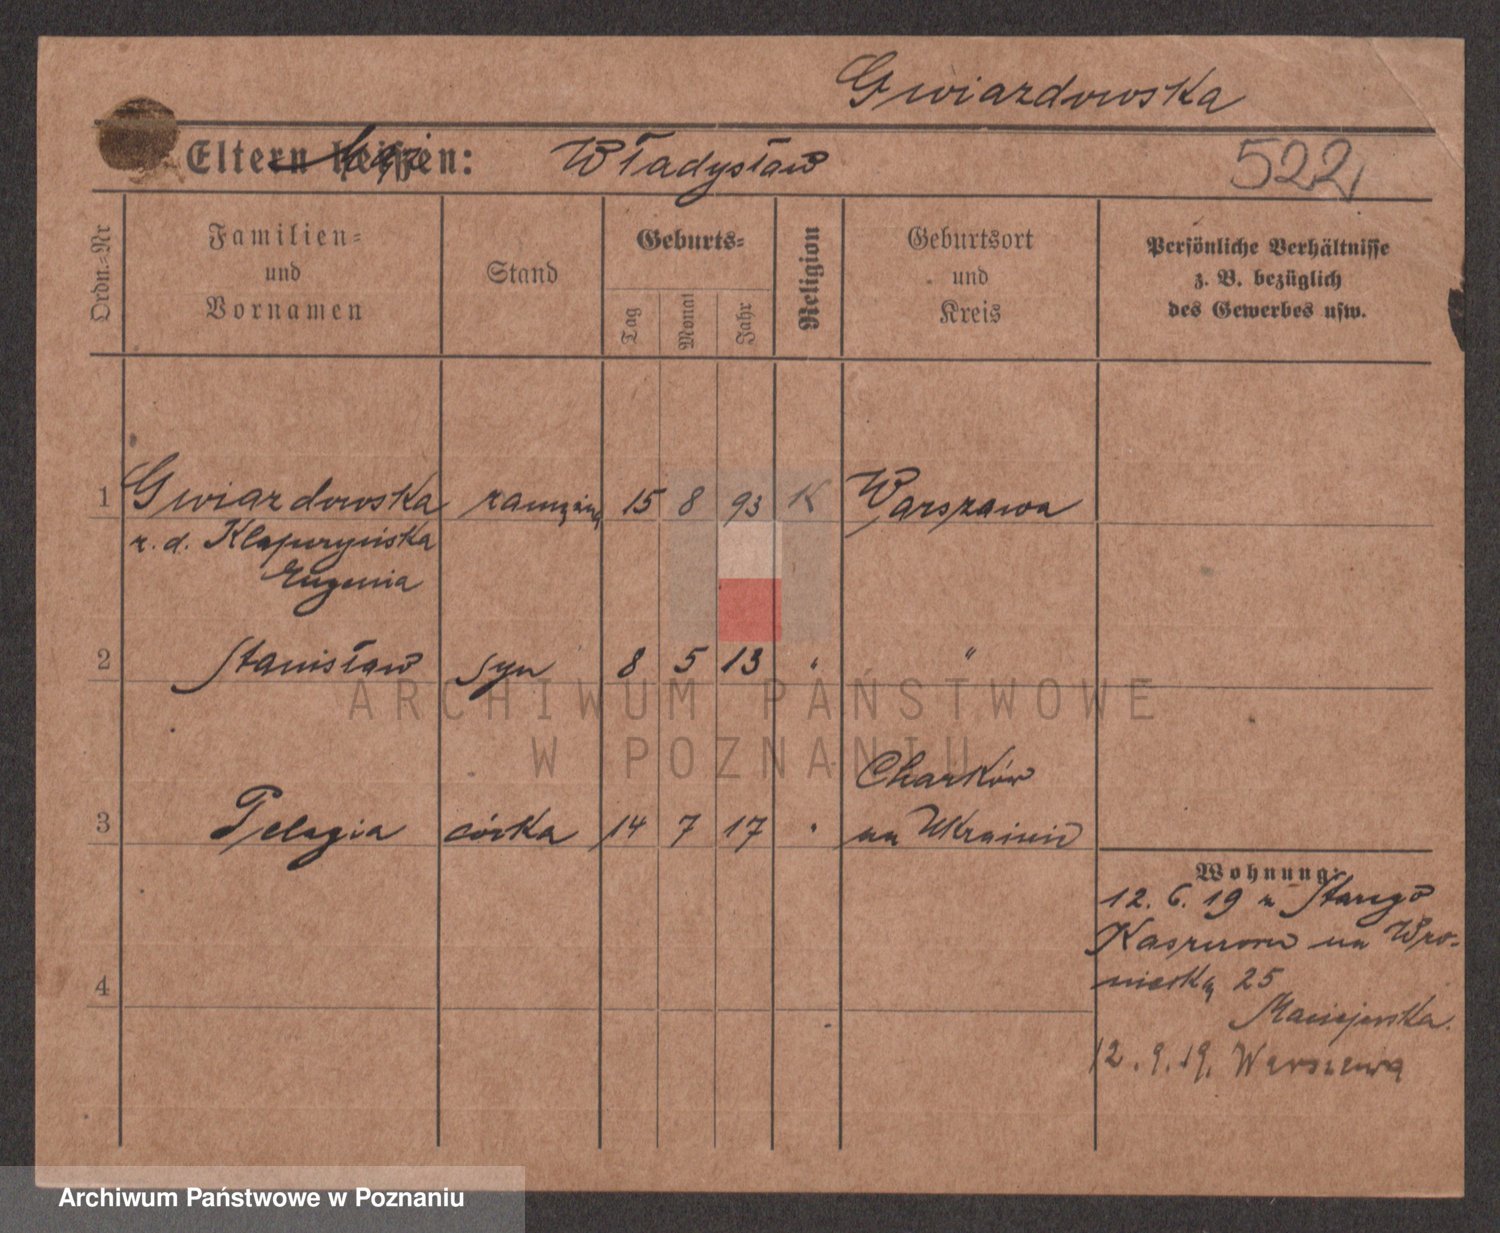 Gwiazdowska
Eltern heißen: Władysław
522
Ordn.=Nr
Familien=
und
Vornamen
Stand
Geburts=
Tag
Monat
Jahr
Religion
Geburtsort
und
Kreis
Persönliche Verhältnisse
z. B. bezüglich
des Gewerbes usw.
1 Gwiazdowska zamężna 15 8 93 K Warszawa
z. d.
Eugenia
2 Stanisław syn 8 5 13 " "
ARCHIWUM PAŃSTWOWE
W POZNANIU
Charków
3 Pelagia córka 14 7 17 " na Ukrainie
Wohnung:
12. 6. 19 z Starego
na Wro-
4
niecką 25
Maciejewska.
12. 9. 19. Warszawa
Archiwum Państwowe w Poznaniu